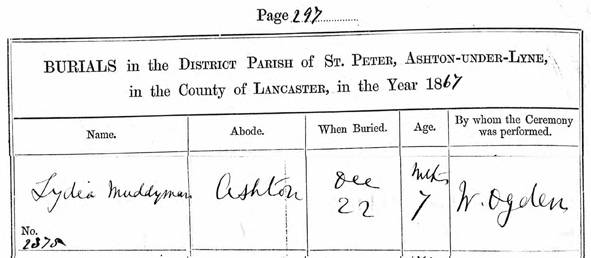 Page 297
BURIALS in the DISTRICT PARISH of ST. PETER, ASHTON-UNDER-LYNE,
in the County of LANCASTER, in the Year 1867
Name. Abode. When Buried. Age. By whom the Ceremony was performed.
Lydia Muddyman Ashton Dec 22 Mths 7 W. Ogden
No.
2375